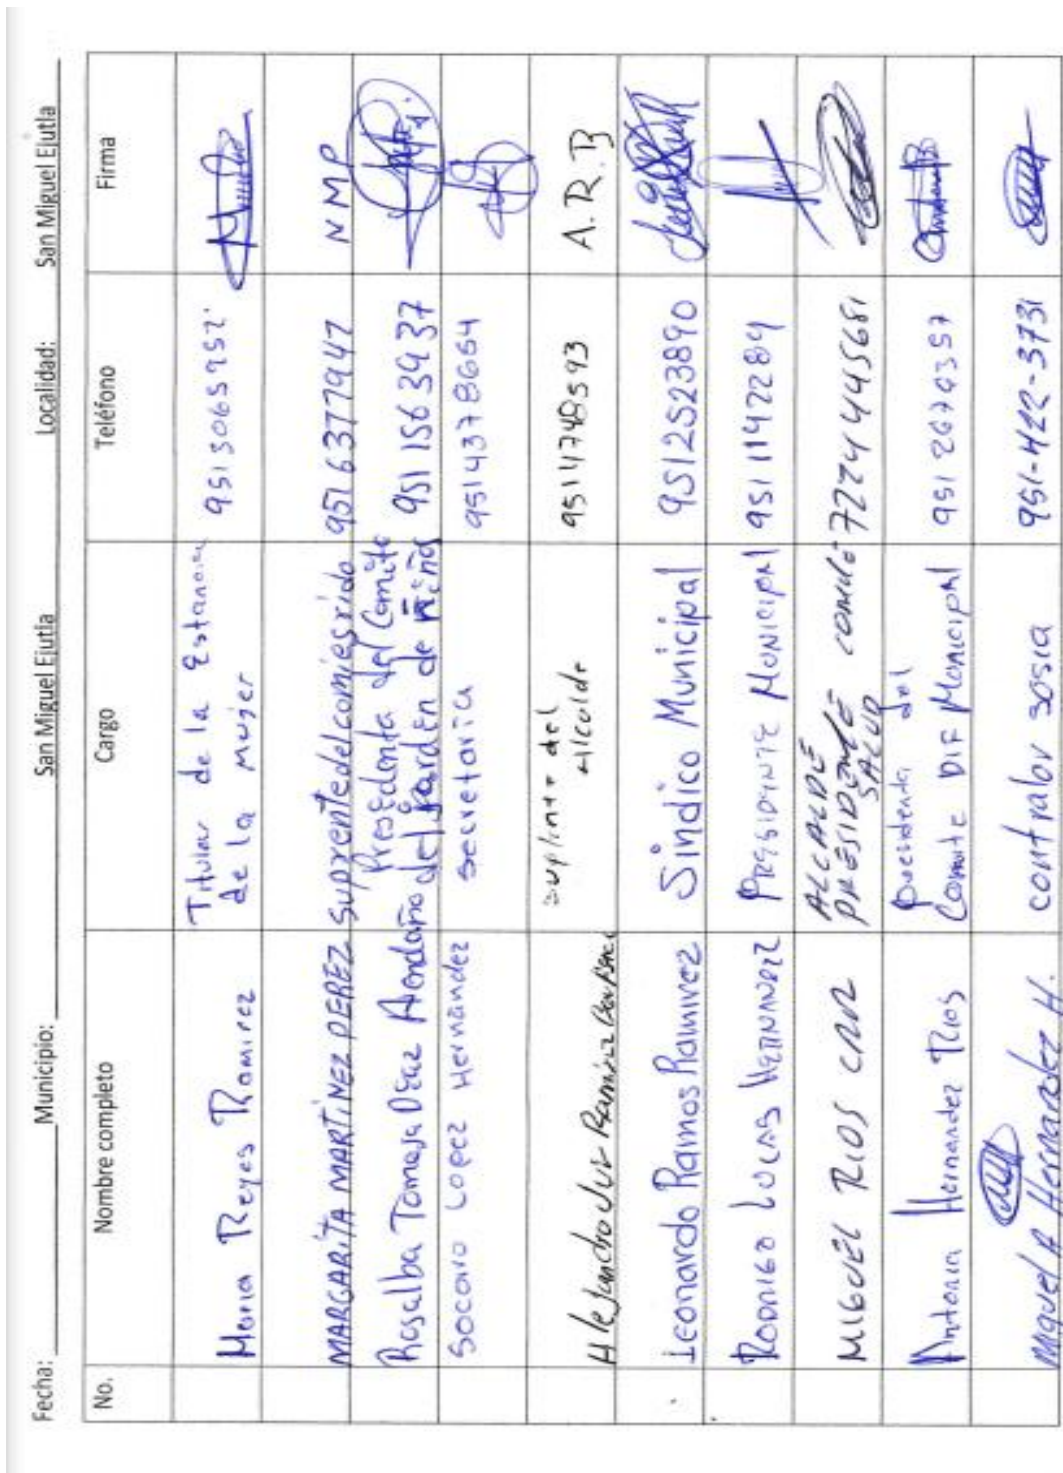 Fecha: Municipio: San Miguel Ejutla Localidad: San Miguel Ejutla
No. Nombre completo Cargo Teléfono Firma
Maria Reyes Ramirez Titular de la Estancia de la Mujer 9513065952
MARGARITA MARTINEZ PEREZ 9516377947 NMP
Rosalba Tomasa Díaz Presedenta del Comite del jardin de niños 951 1563937
Socorro Lopez Hernández secretaria 9514378664
Alejandro Ramirez suplente del Alcalde 9511748593 A.R.B
Leonardo Ramos Ramirez Sindico Municipal 9512523890
Rodrigo Lucas Hernandez Presidente Municipal 951 1142289
MIGUEL RIOS CRUZ ALCALDE PRESIDENTE COMITÉ SALUD 7224445681
Antonia Hernandez Rios presidenta del Comite DIF Municipal 951
Miguel A Hernandez H. contralor sosia 951-422-3731